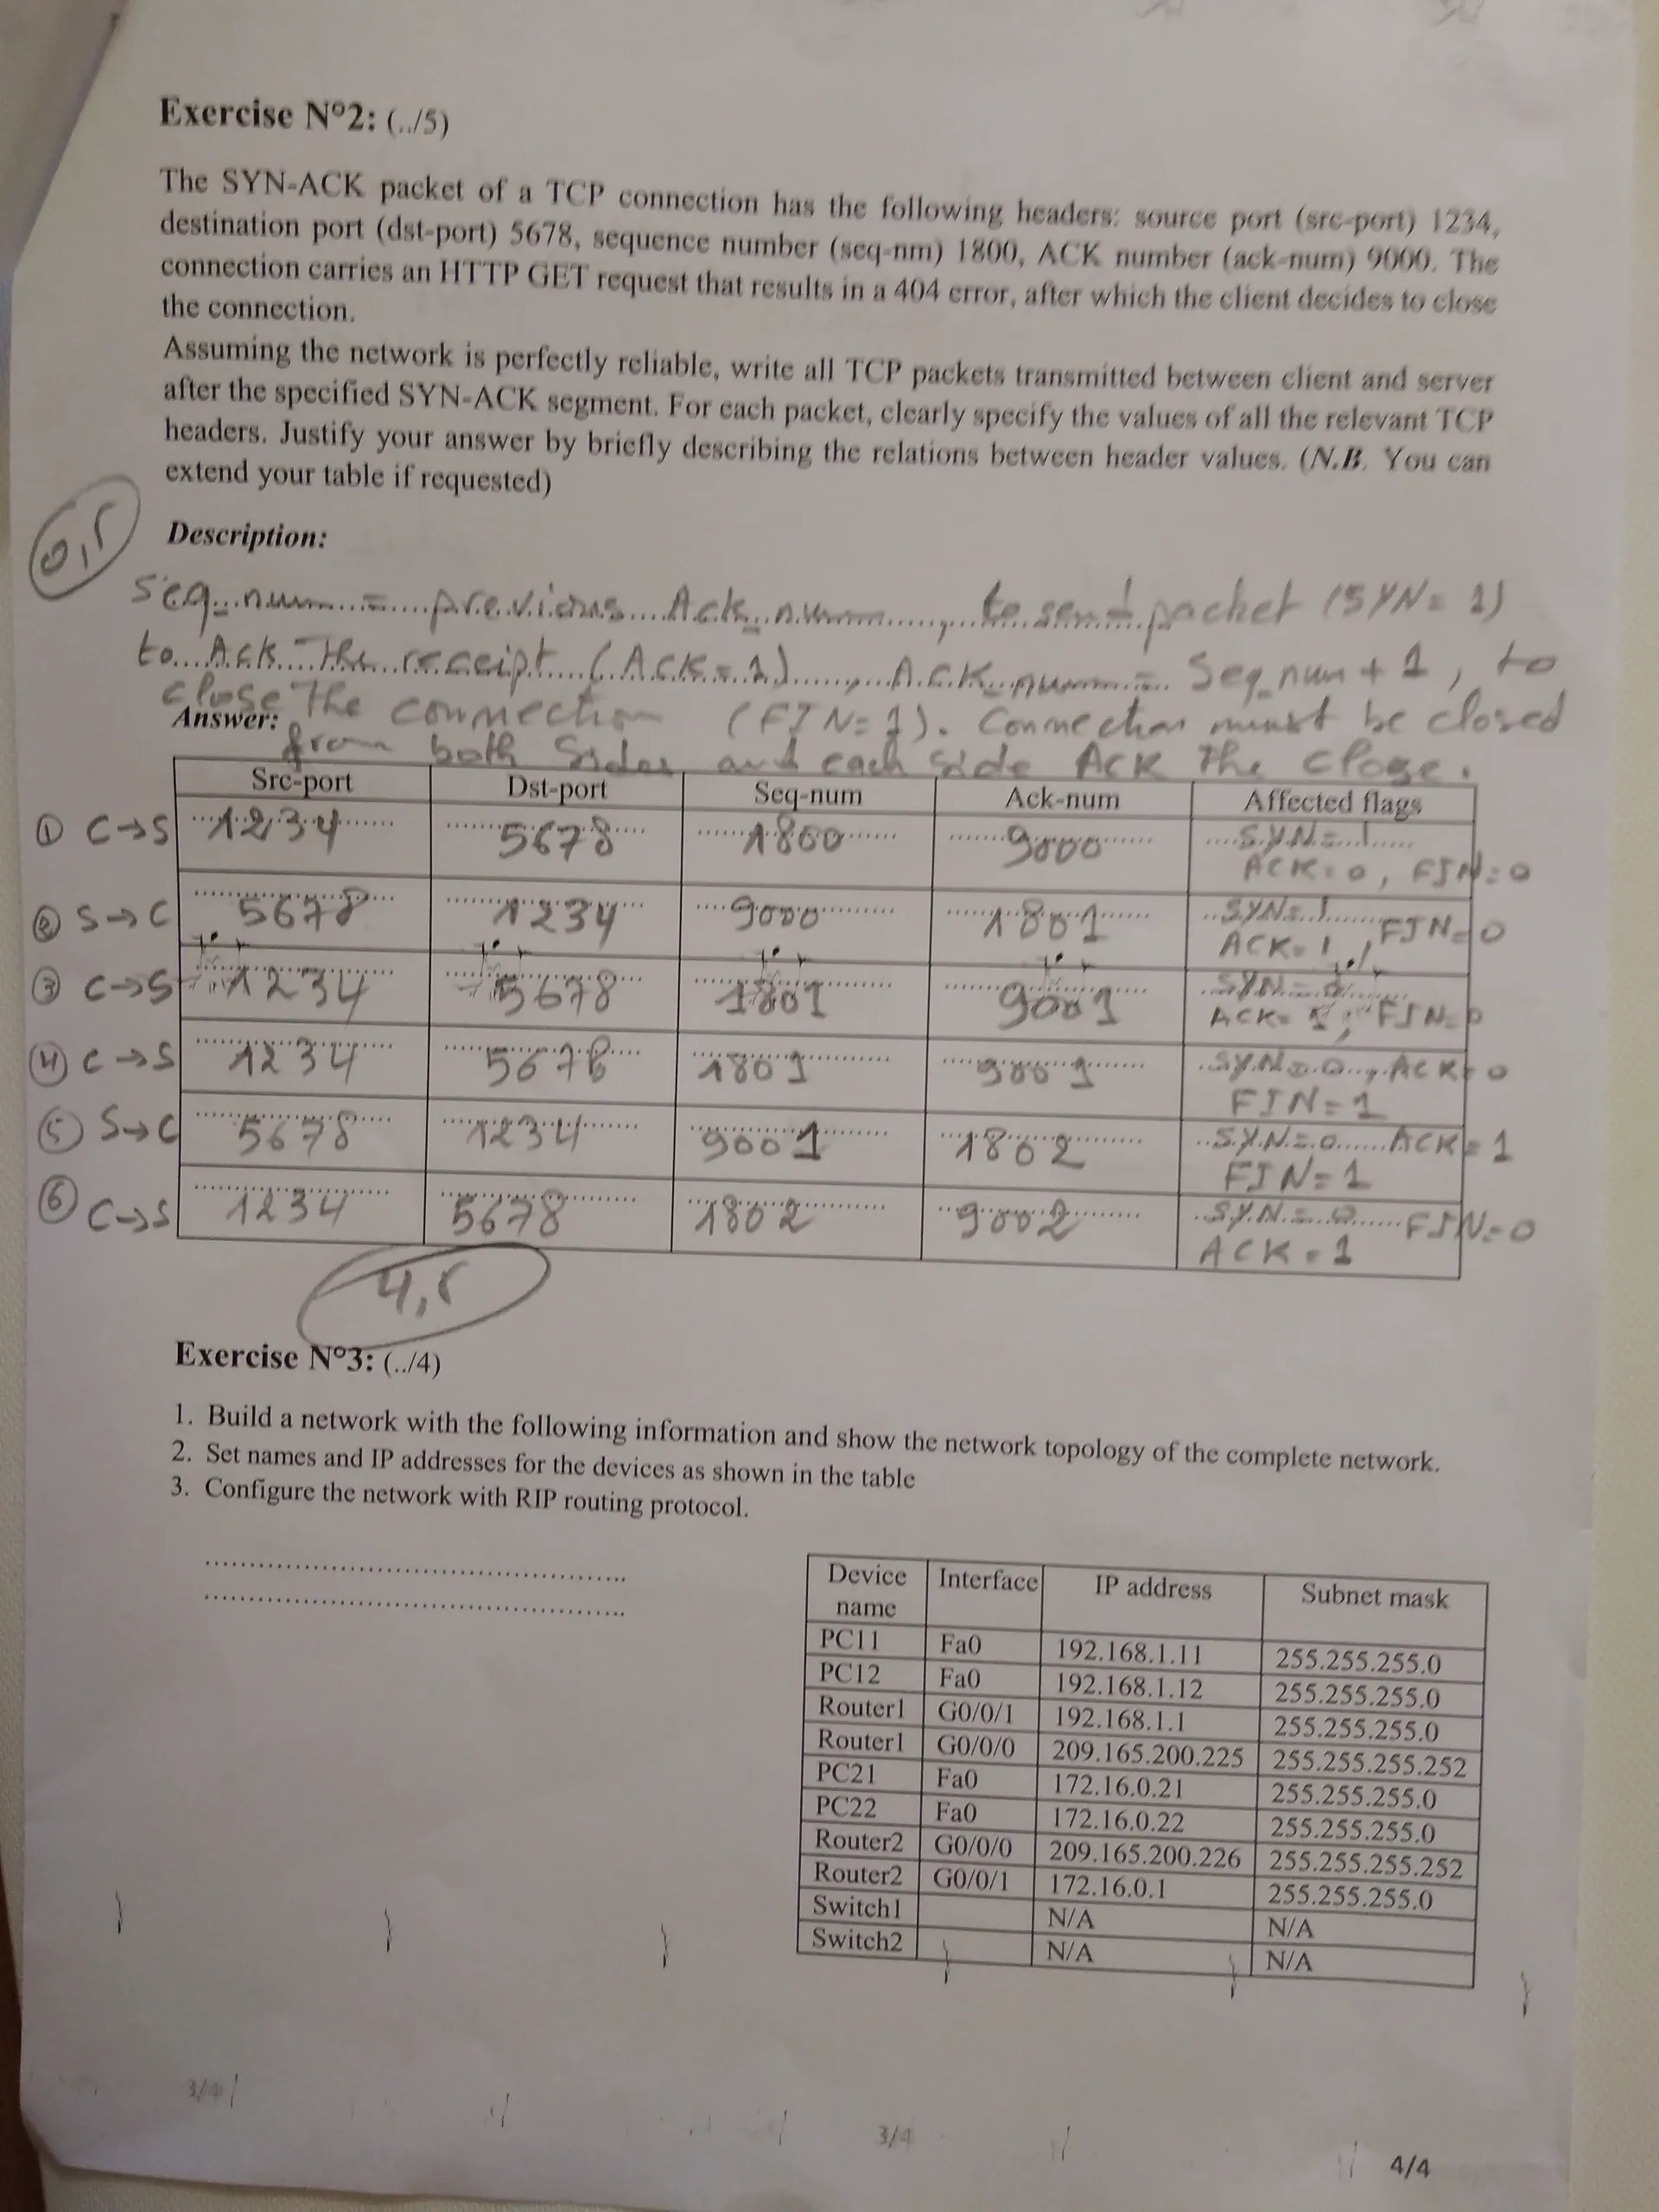 Exercise N°2: (../5)
The SYN-ACK packet of a TCP connection has the following headers: source port (src-port) 1234,
destination port (dst-port) 5678, sequence number (seq-nm) 1800, ACK number (ack-num) 9000. The
connection carries an HTTP GET request that results in a 404 error, after which the client decides to close
the connection.
Assuming the network is perfectly reliable, write all TCP packets transmitted between client and server
after the specified SYN-ACK segment. For each packet, clearly specify the values of all the relevant TCP
headers. Justify your answer by briefly describing the relations between header values. (N.B. You can
extend your table if requested)
0,5
Description:
Seq_num = previous Ack_num, to send packet (SYN=1)
to Ack The receipt (ACK=1), ACK_num = Seq_num + 1, to
close The connection (FIN=1). Connection must be closed
Answer:
from both Sides and each side ACK The close.
Src-port Dst-port Seq-num Ack-num Affected flags
① C→S 1234 5678 1800 9000 SYN=1
ACK=0, FIN=0
② S→C 5678 1234 9000 1801 SYN=1 FIN=0
ACK=1,
③ C→S 1234 5678 1801 9001 SYN=0
ACK=1, FIN=0
④ C→S 1234 5678 1801 9001 SYN=0, ACK=0
FIN=1
⑤ S→C 5678 1234 9001 1802 SYN=0 ACK=1
FIN=1
⑥ C→S 1234 5678 1802 9002 SYN=0 FIN=0
ACK=1
4,5
Exercise N°3: (../4)
1. Build a network with the following information and show the network topology of the complete network.
2. Set names and IP addresses for the devices as shown in the table
3. Configure the network with RIP routing protocol.
Device name Interface IP address Subnet mask
PC11 Fa0 192.168.1.11 255.255.255.0
PC12 Fa0 192.168.1.12 255.255.255.0
Router1 G0/0/1 192.168.1.1 255.255.255.0
Router1 G0/0/0 209.165.200.225 255.255.255.252
PC21 Fa0 172.16.0.21 255.255.255.0
PC22 Fa0 172.16.0.22 255.255.255.0
Router2 G0/0/0 209.165.200.226 255.255.255.252
Router2 G0/0/1 172.16.0.1 255.255.255.0
Switch1 N/A N/A
Switch2 N/A N/A
3/4
3/4
4/4